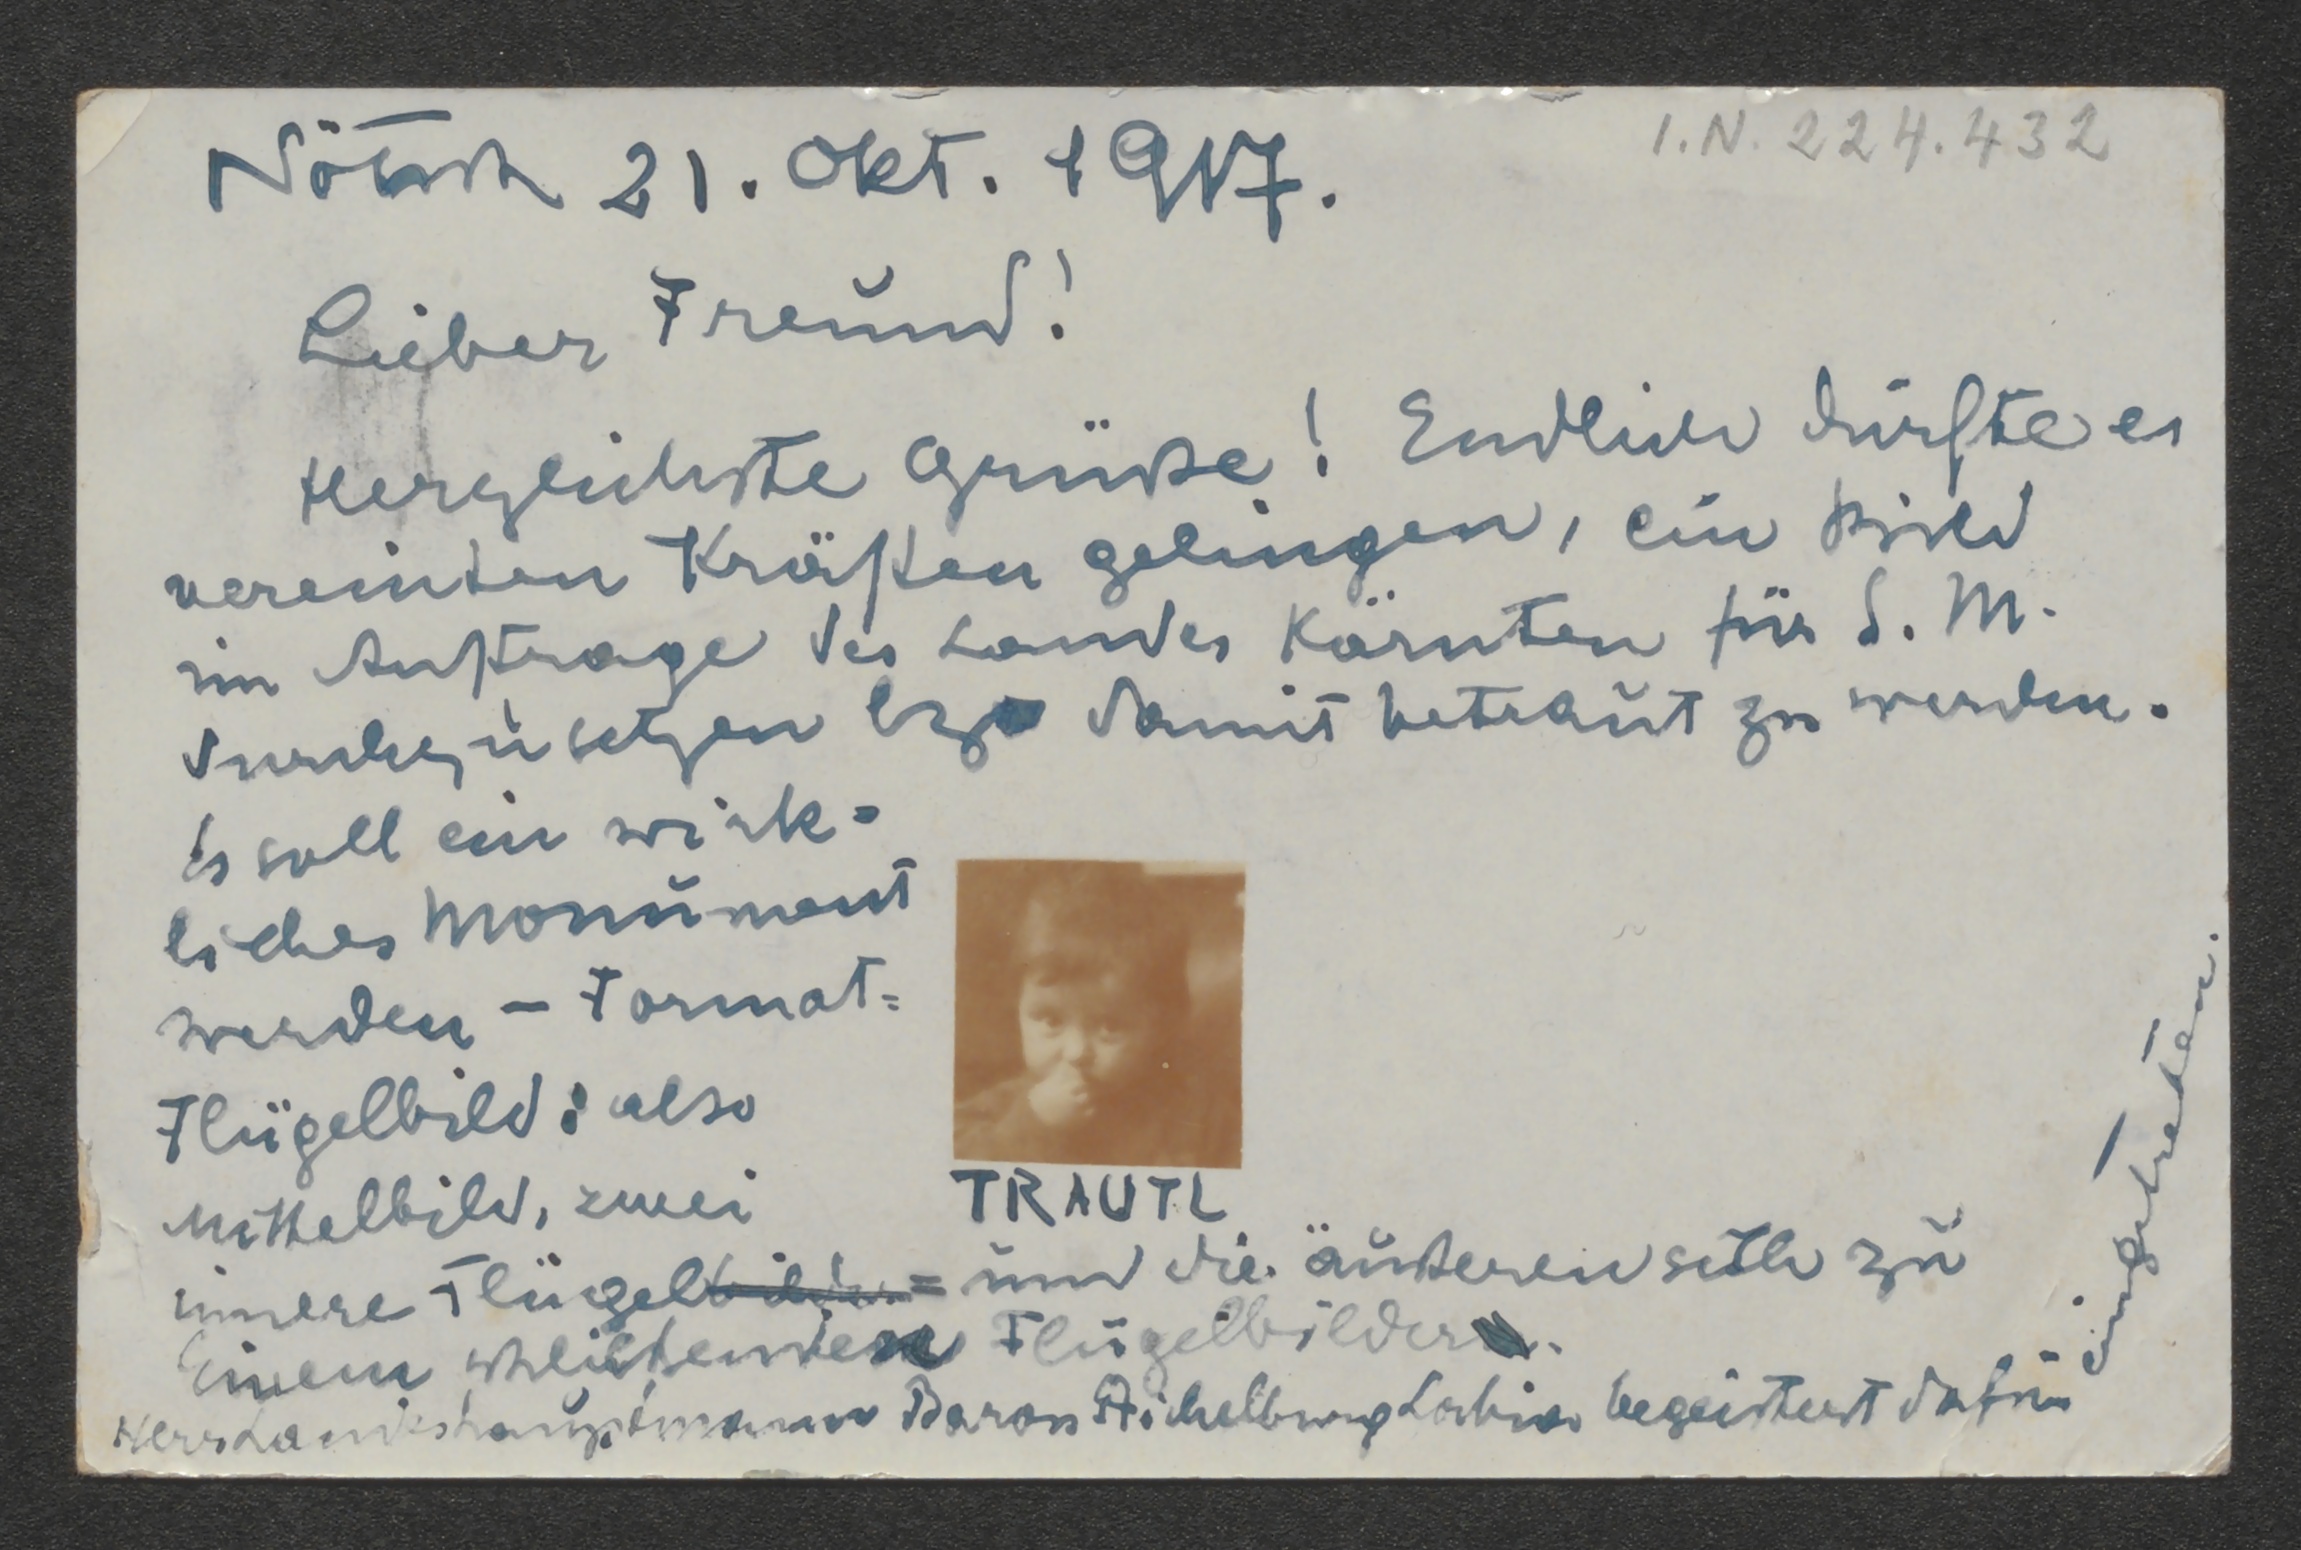 I.N. 224.432
Nötsch 21. Okt. 1917.
Lieber Freund!
Herzlichste Grüße! Endlich dürfte es
vereinten Kräften gelingen, ein Bild
im Auftrage des Landes Kärnten für S. M.
durchzusetzen bzw. damit betraut zu werden.
Es soll ein wirk=
liches Monument
werden – Format=
Flügelbild: also
Mittelbild, zwei
innere Flügelbilder= und die äußeren sich zu
Einem schließenden Flügelbilder.
Herr Landeshauptmann Baron Aichelburg Labia begeistert dafür
eingetreten.
TRAUTL